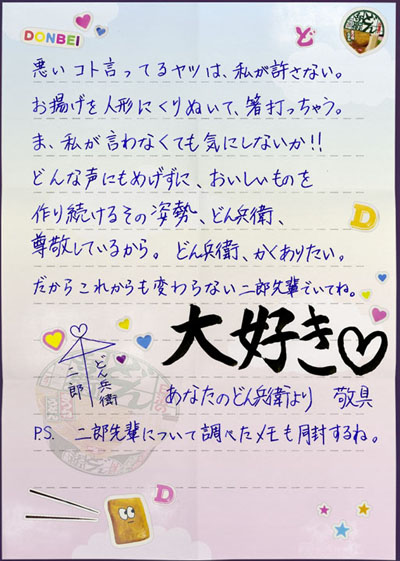 DONBEI
ど
悪いコト言ってるヤツは、私が許さない。
お揚げを人形にくりぬいて、箸打っちゃう。
ま、私が言わなくても気にしないか!!
どんな声にもめげずに、おいしいものを
作り続けるその姿勢、どん兵衛、
D
尊敬しているから。どん兵衛、かくありたい。
だからこれからも変わらない二郎先輩でいてね。
大好き♡
どん兵衛
二郎
あなたのどん兵衛より 敬具
P.S. 二郎先輩について調べたメモも同封するね。
D